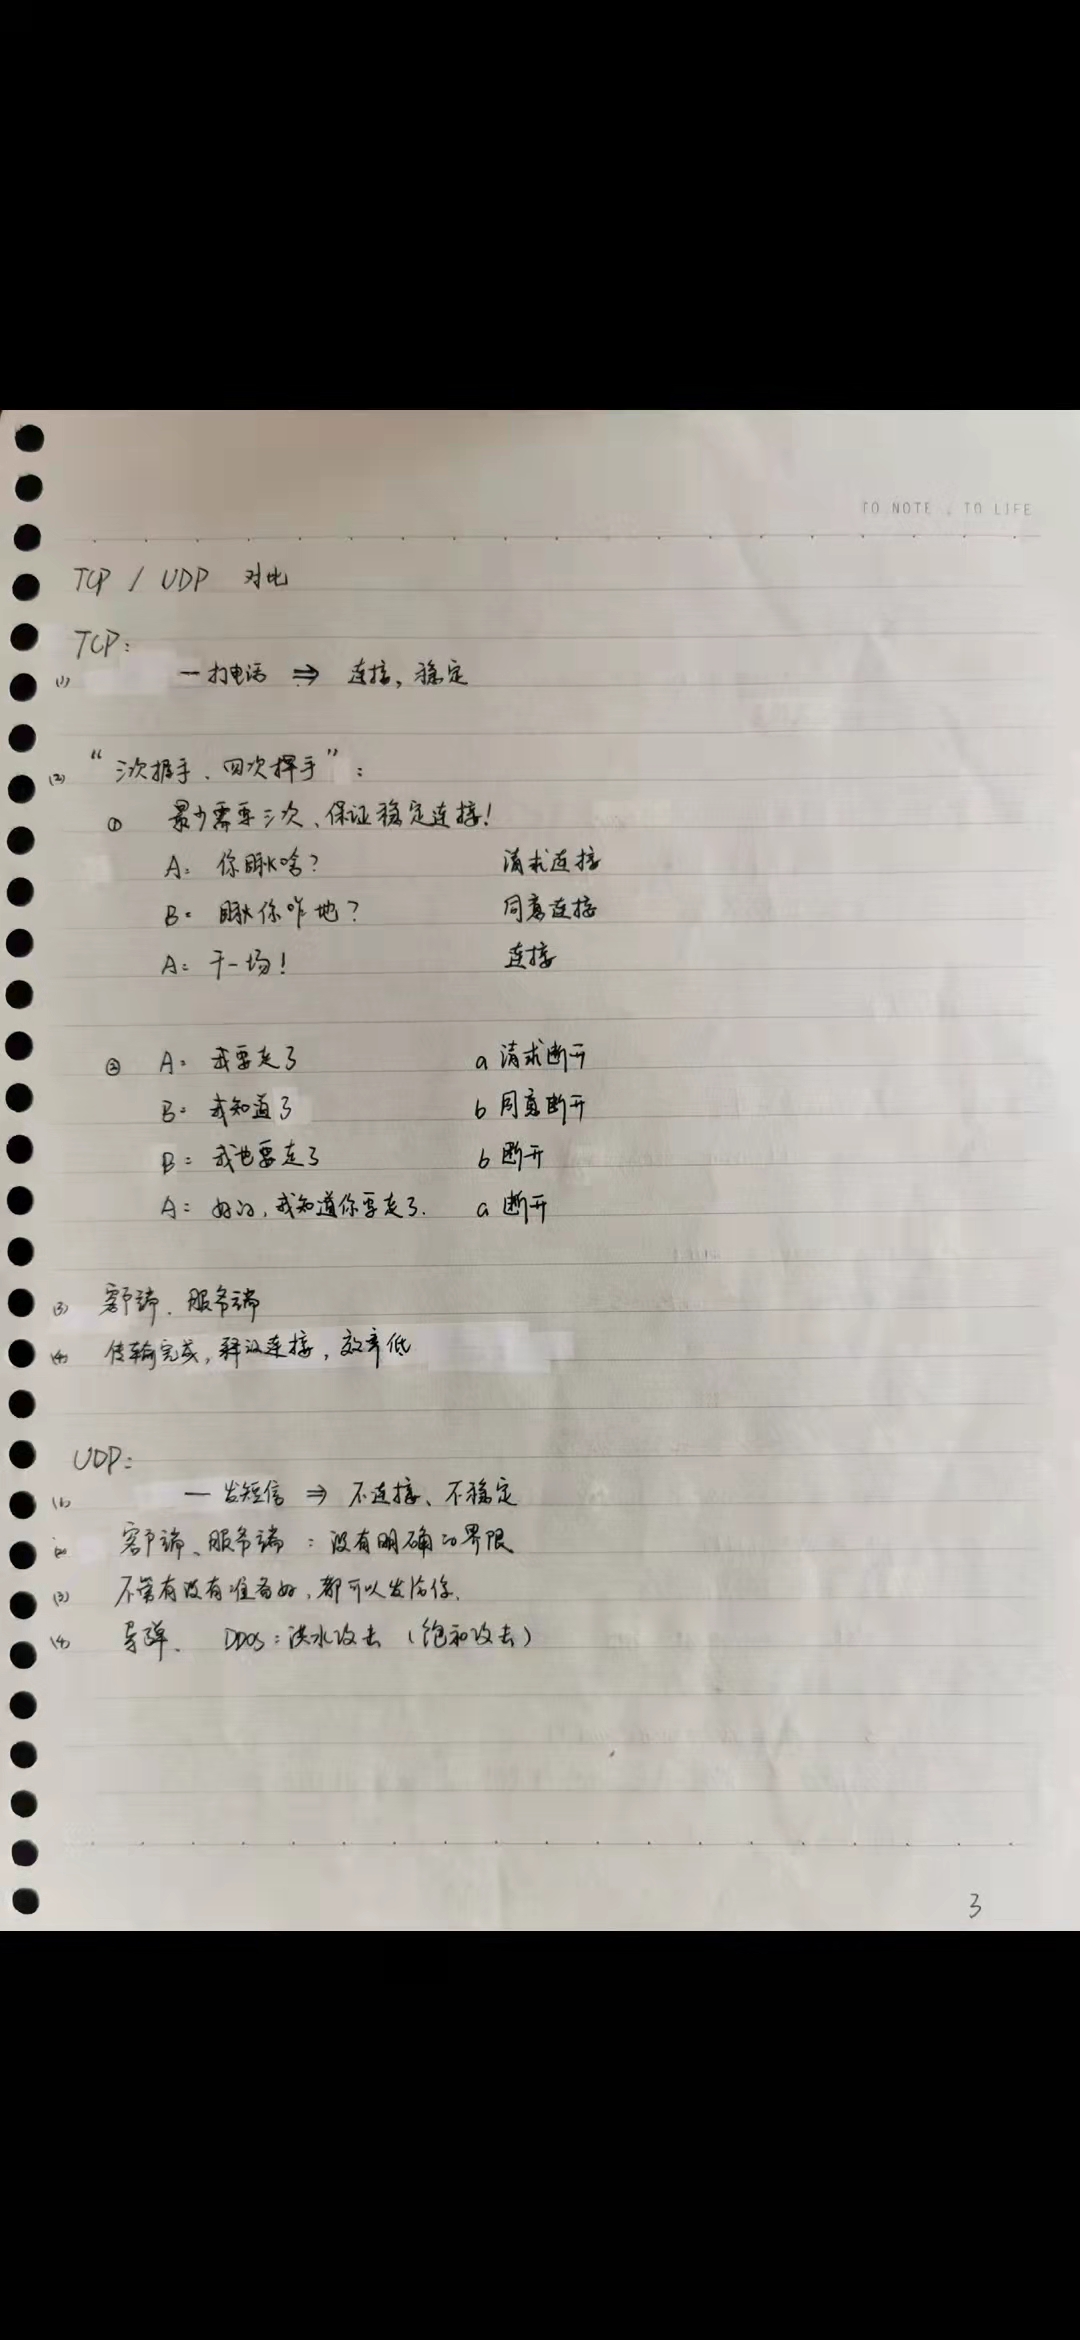 TO NOTE , TO LIFE
TCP / UDP 对比
TCP:
(1) 一打电话 ⇒ 连接, 稳定
(2) “三次握手、四次挥手”:
① 最少需要三次、保证稳定连接!
A: 你瞅啥? 请求连接
B: 瞅你咋地? 同意连接
A: 干一场! 连接
② A: 我要走了 a 请求断开
B: 我知道了 b 同意断开
B: 我也要走了 b 断开
A: 好的, 我知道你要走了. a 断开
(3) 客户端、服务端
(4) 传输完成, 释放连接, 效率低
UDP:
(1) 一发短信 ⇒ 不连接、不稳定
(2) 客户端、服务端: 没有明确的界限
(3) 不管有没有准备好, 都可以发给你.
(4) 导弹、 DDOS: 洪水攻击 (饱和攻击)
3